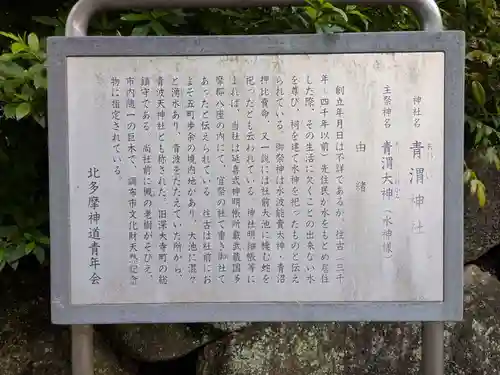 神社名 青渭神社
主祭神名 青渭大神(水神様)
由緒
創立年月日は不詳であるが、往古(三千
年~四千年以前)先住民が水をもとめ居住
した際、その生活に欠くことの出来ない水
を尊び、祠を建て水神を祀ったものと伝え
られている。御祭神は水波能賣大神・青沼
押比賣命、又一説には社前大池に棲む蛇を
祀ったとも云われている。神社明細帳等に
よれば、当社は延喜式神明帳所載武蔵国多
摩郡八座の内にて、官祭の社で書き御社で
あったと伝えられている。往古は社前にお
よそ五町歩余の境内地があり、大池に混々
と湧水あり、青波をたたえていた所から、
青波天神社とも称された。旧深大寺町の総
鎮守である。尚社前に欅の老樹がそびえ、
市内随一の巨木で、調布市文化財天然記念
物に指定されている。
北多摩神道青年会